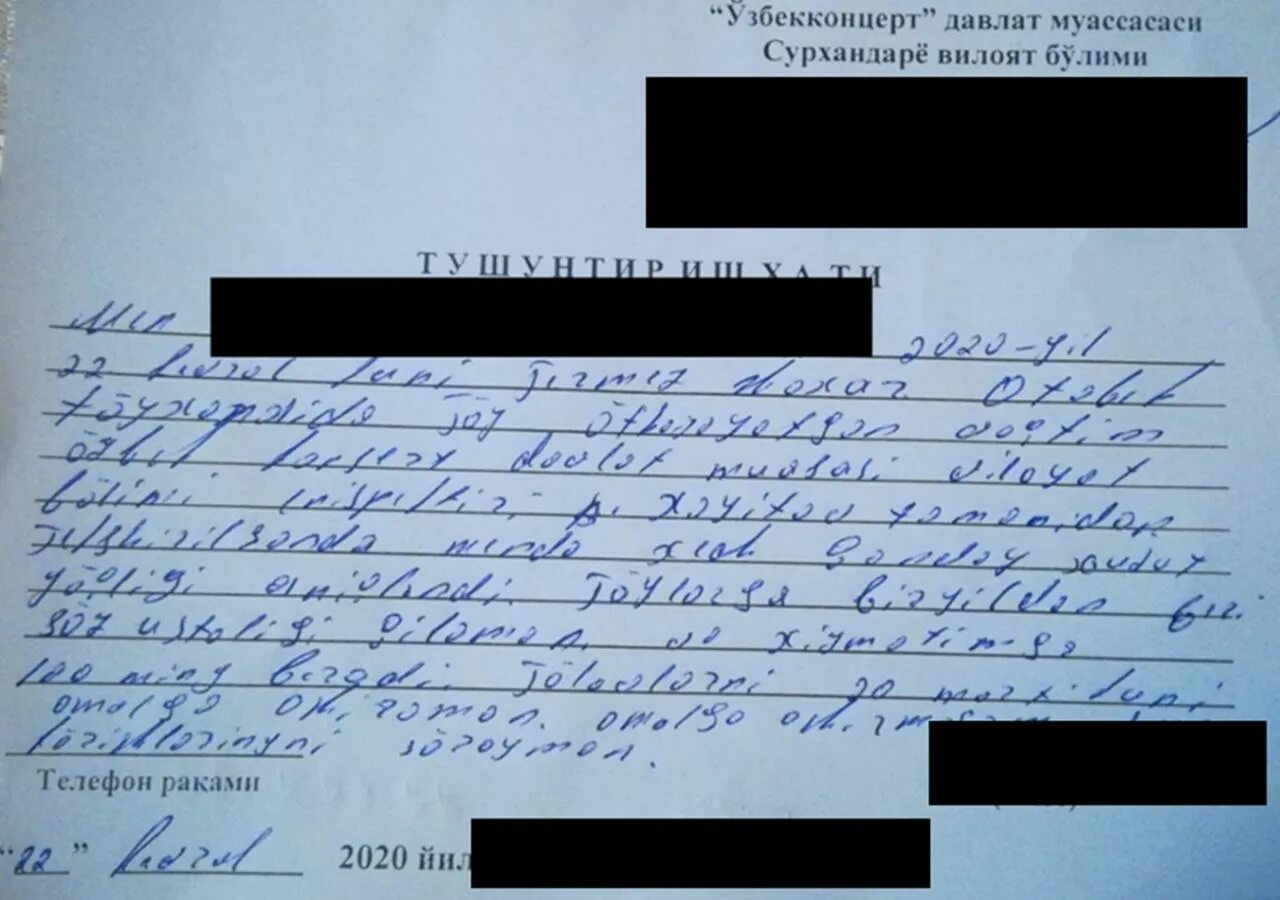 “Ўзбекконцерт” давлат муассасаси
Сурхандарё вилоят бўлими
ТУШУНТИРИШ ХАТИ
Men
2020-yil
22 fevral kuni Termez shaxar Otabek
tõyxonasida tõy õtkazayotgan vaqtim
õzbek konsert davlat muasasi viloyat
bõlimi inispektiri X. Xayitov tomonidan
tekshirilganda menda xech qanday xudut
yõqligi aniqlandi. Tõylarga bir yildan beri
sõz ustaligi qilaman. va xizmatimga
100 ming beradi. Tõlovlarni 20 mart kuni
amalga oshiraman. amalga
kõrishlaringizni sõrayman.
Телефон раками
“22” fevral 2020 йил